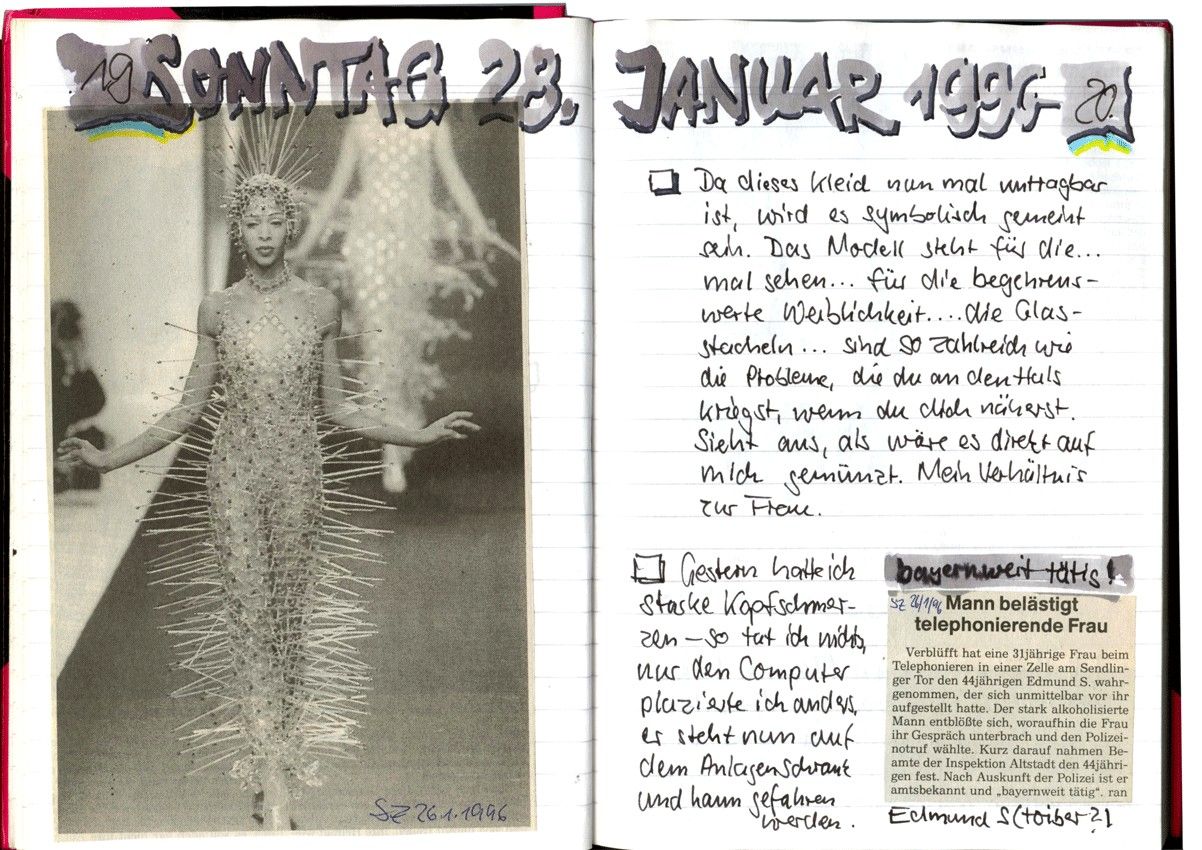 19 SONNTAG 28. JANUAR 1996 20.
SZ 26.1.1996
Da dieses Kleid nun mal untragbar
ist, wird es symbolisch gemeint
sein. Das Modell steht für die...
mal sehen... für die begehrens-
werte Weiblichkeit....die Glas-
stacheln... sind so zahlreich wie
die Probleme, die du an den Hals
kriegst, wenn du dich näherst.
Sieht aus, als wäre es direkt auf
mich gemünzt. Mein Verhältnis
zur Frau.
Gestern hatte ich
starke Kopfschmer-
zen – so tat ich nichts,
nur den Computer
plazierte ich anders,
er steht nun auf
dem Anlagenschrank
und kann gefahren
werden.
bayernweit tätig!
SZ 26/1/96 Mann belästigt
telephonierende Frau
Verblüfft hat eine 31jährige Frau beim
Telephonieren in einer Zelle am Sendlin-
ger Tor den 44jährigen Edmund S. wahr-
genommen, der sich unmittelbar vor ihr
aufgestellt hatte. Der stark alkoholisierte
Mann entblößte sich, woraufhin die Frau
ihr Gespräch unterbrach und den Polizei-
notruf wählte. Kurz darauf nahmen Be-
amte der Inspektion Altstadt den 44jähri-
gen fest. Nach Auskunft der Polizei ist er
amtsbekannt und „bayernweit tätig“. ran
Edmund S(toiber?)